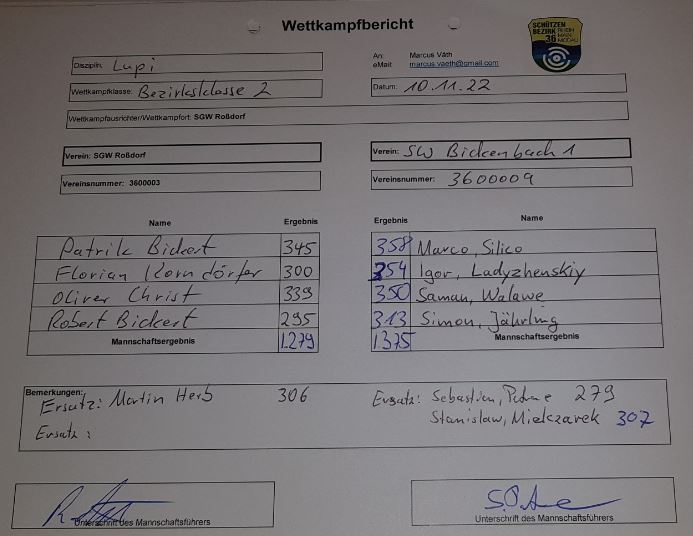 Wettkampfbericht
SCHÜTZEN
BEZIRK
36
RHEIN
MAIN
MODAU
Disziplin: Lupi
An: Marcus Väth
eMail: marcus.vaeth@gmail.com
Wettkampfklasse: Bezirksklasse 2
Datum: 10.11.22
Wettkampfausrichter/Wettkampfort: SGW Roßdorf
Verein: SGW Roßdorf
Verein: SW Bickenbach 1
Vereinsnummer: 3600003
Vereinsnummer: 3600009
Name Ergebnis Ergebnis Name
Patrik Bickert 345 358 Marco, Silico
Florian Korndörfer 300 354 Igor, Ladyzhenskiy
Oliver Christ 339 350 Saman, Walawe
Robert Bickert 295 313 Simon, Jährling
Mannschaftsergebnis 1.279 1.375 Mannschaftsergebnis
Bemerkungen:
Ersatz: Martin Herb 306 Ersatz: Sebastian, 279
Stanislaw, Mielczarek 307
Ersatz:
Unterschrift des Mannschaftsführers Unterschrift des Mannschaftsführers